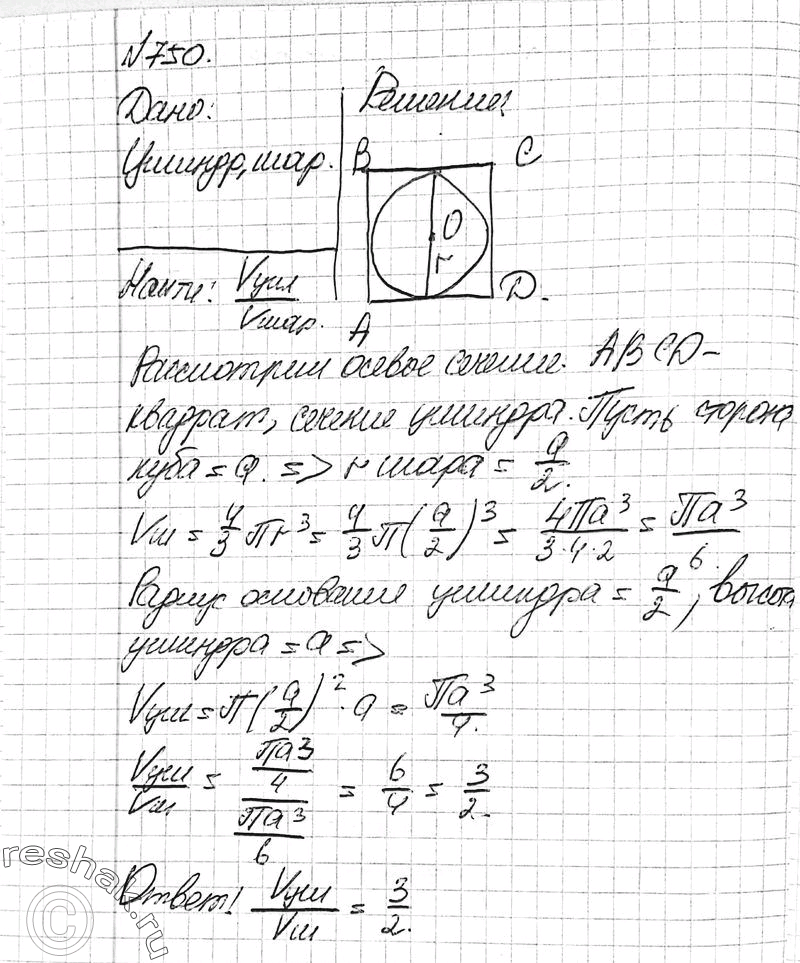 №750.
Дано: Решение:
Цилиндр, шар.
B C
O
r
Найти: Vцил/Vшар.
A D.
Рассмотрим осевое сечение. ABCD-
квадрат, сечение цилиндра. Пусть сторона
куба = a. => r шара = a/2.
Vш = 4/3 πr³ = 4/3 π(a/2)³ = 4πa³/3·4·2 = πa³/6.
Радиус основания цилиндра = a/2, высота
цилиндра = a =>
Vцил = π(a/2)²·a = πa³/4.
Vцил/Vш = πa³/4/πa³/6 = 6/4 = 3/2.
Ответ: Vцил/Vш = 3/2.
reshak.ru
©